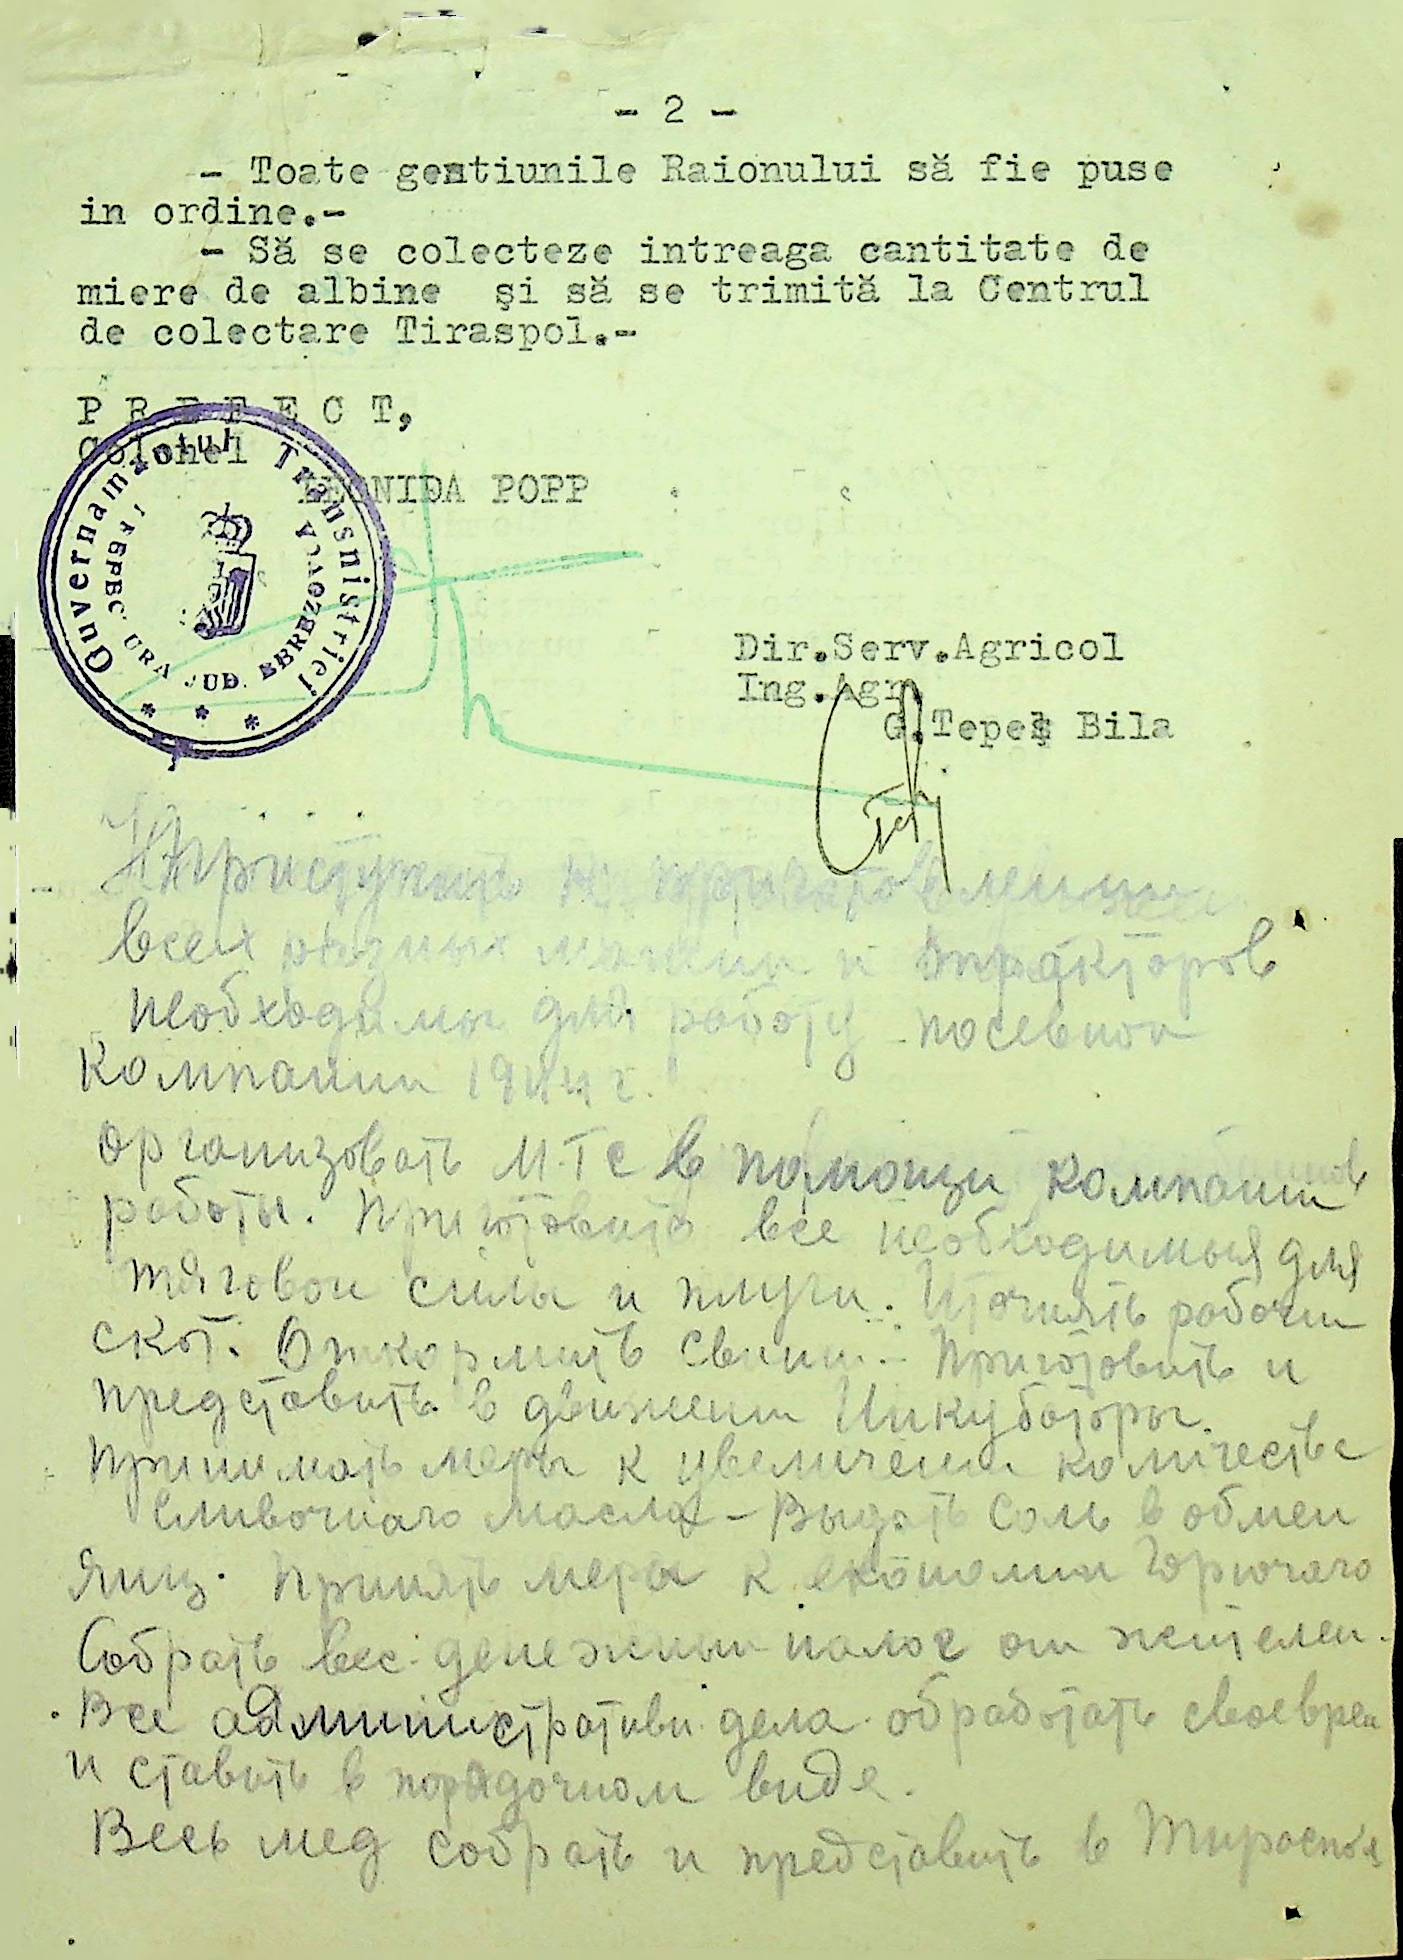 - 2 -
- Toate gestiunile Raionului să fie puse
in ordine.-
- Să se colecteze intreaga cantitate de
miere de albine şi să se trimită la Centrul
de colectare Tiraspol.-
P R E F E C T,
Colonel
LEONIDA POPP
Guvernamantul Transnistriei
PREFECTURA JUD. BEREZOVCA
Dir.Serv.Agricol
Ing.Agr.
G.Tepeş Bila
Приступить к приготовлению
всех разных машин и тракторов
необходимы для работу посевной
компании 1944 г.
Организовать М.Т.С в помощи компании
работы. Приготовить все необходимыя для
тяговои силы и плуги. рабочи
скот. Откормить свиней - Приготовить и
представить в движении Инкубаторы.
Принимать меры к увеличении количества
сливочного масла - Выдать соль в обмен
яиц. Принять меры к економии горючаго
Собрать вес денежный налог от жителей.
Все административн. дела обработать своеврем
и ставить в порядочном виде.
Весь мед собрать и представить в Тирасполь